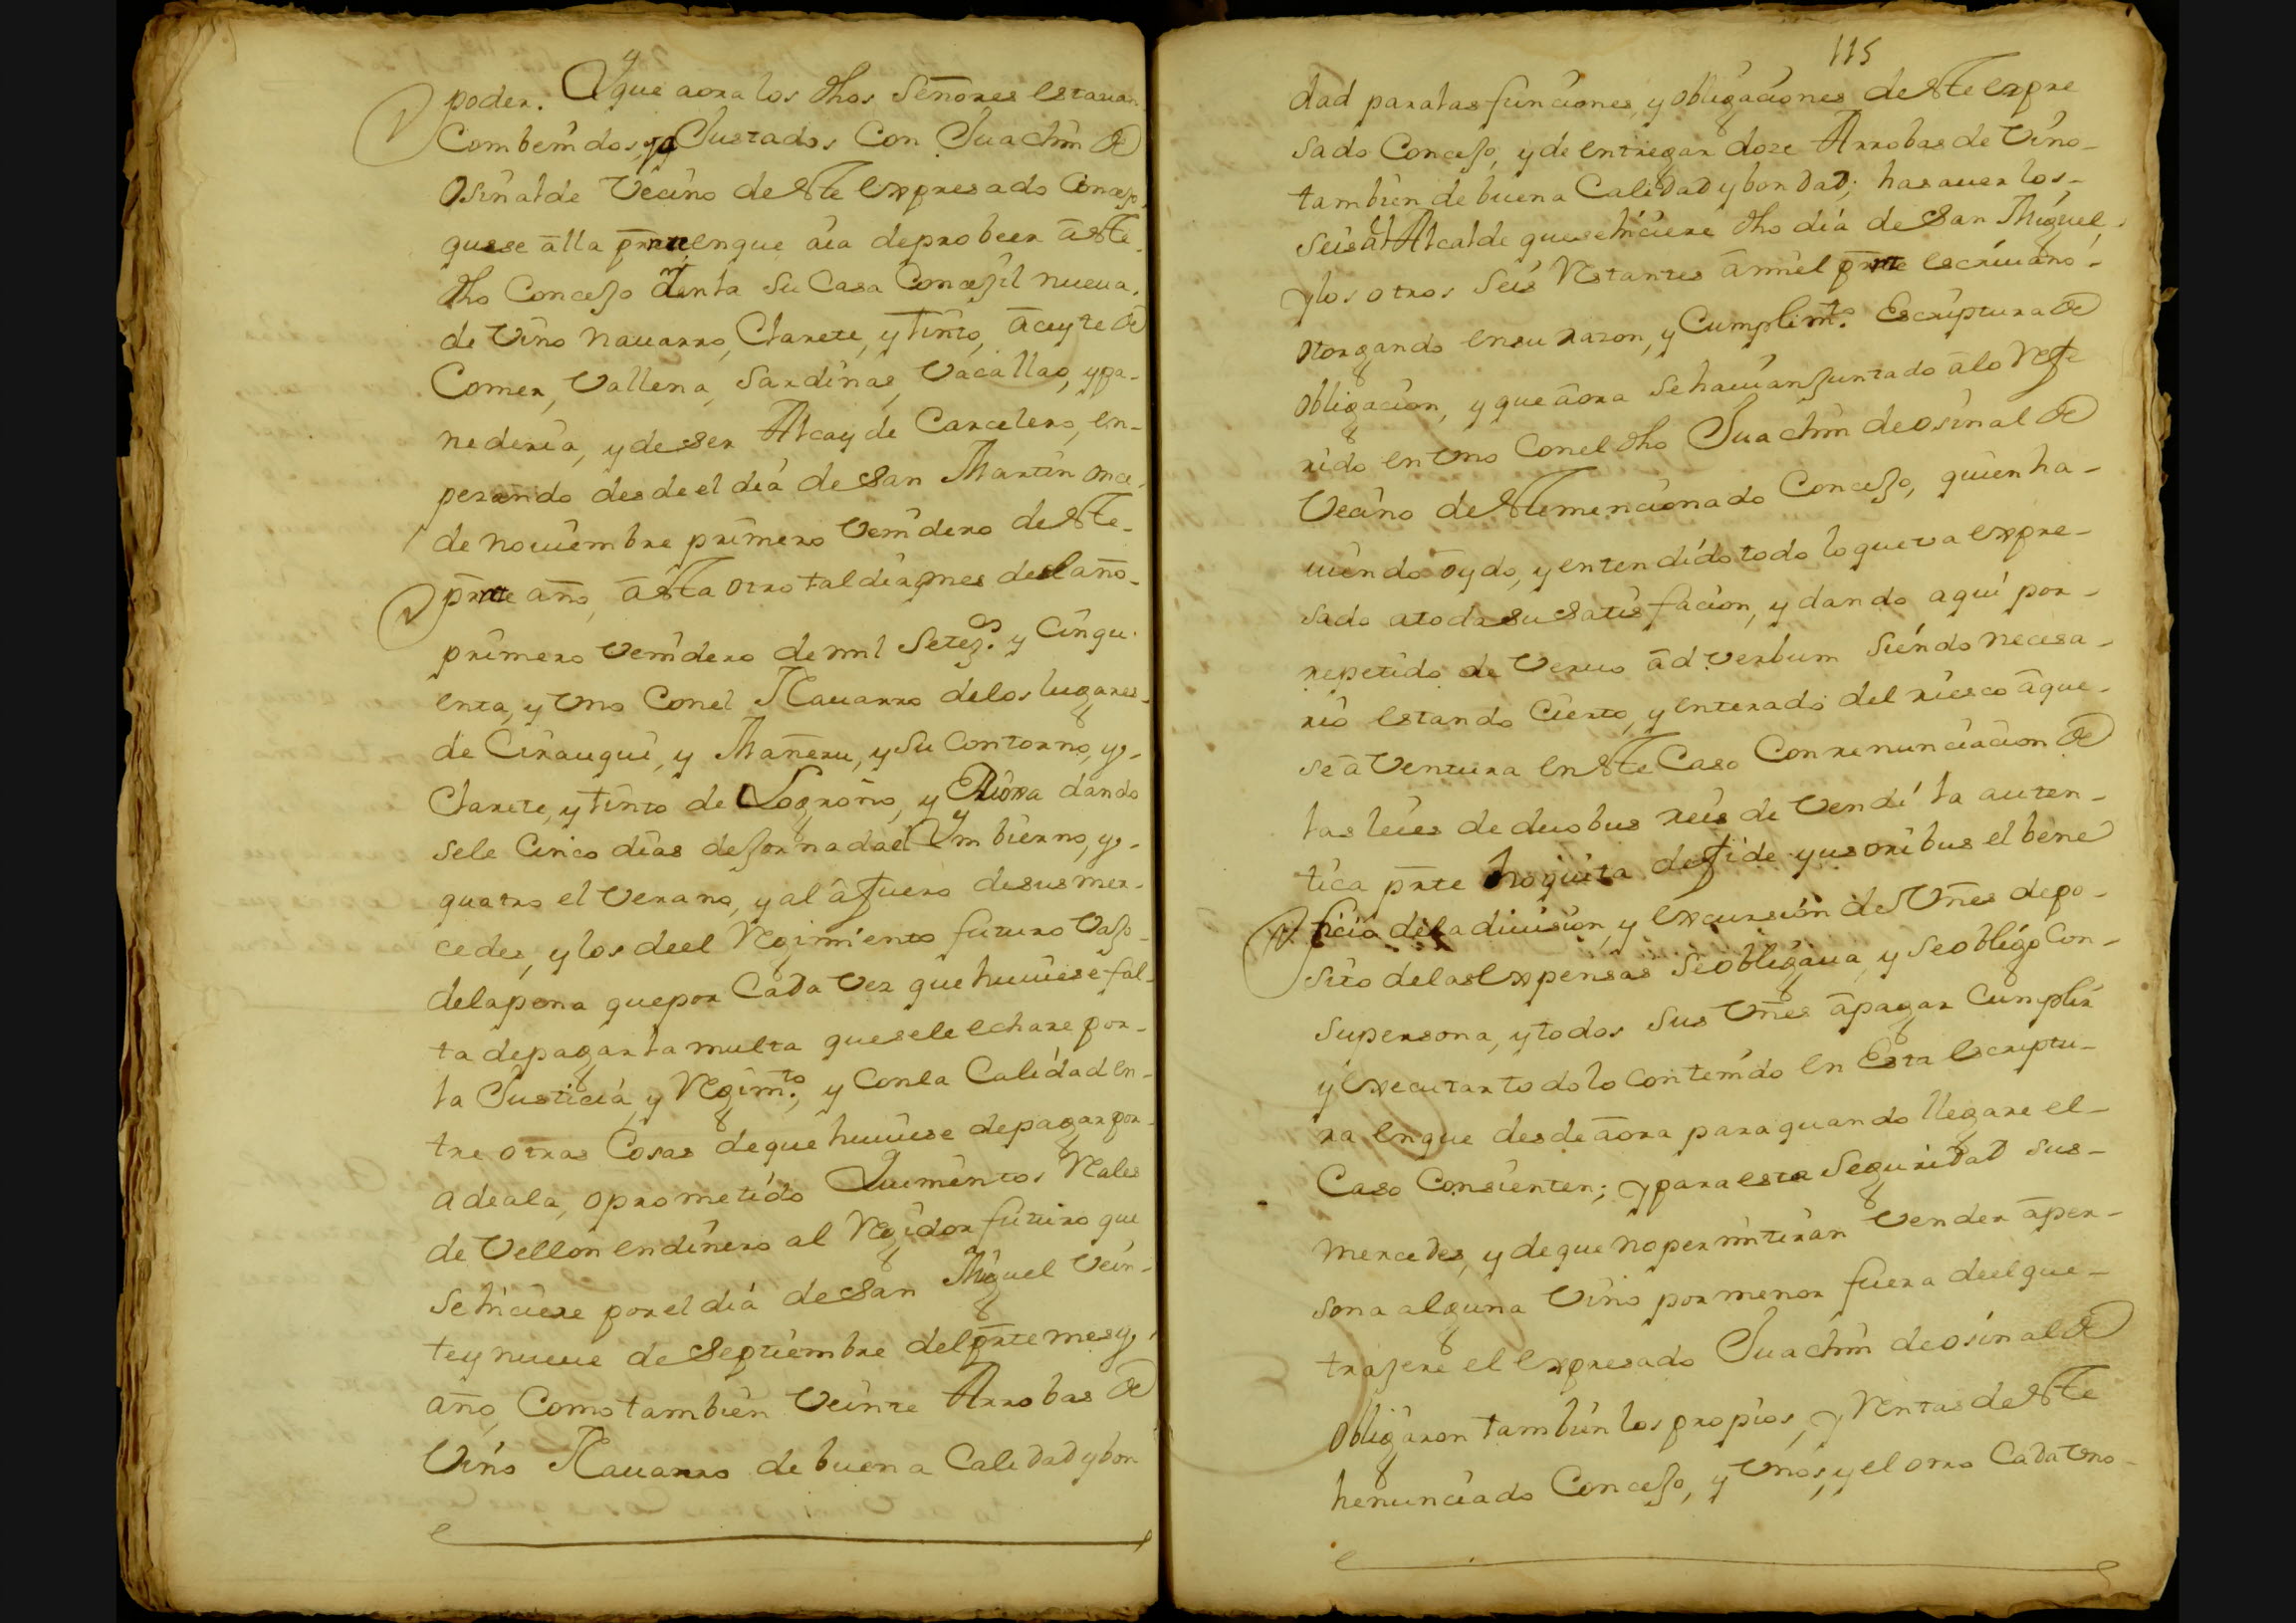 poder. Y que aora los dhos Señores estauan
Combenidos, y aJustados Con Juachin de
Osinalde Vecino de este Expresado Concejo,
que se alla preste, en que aia de probeer a este
dho Concejo en la su Casa Concejil nueua,
de Vino nauarro, Clarete, y tinto, aceyte de
Comer, Vallena, Sardinas, Vacallao, y pa-
nederia, y de ser Alcayde Carcelero, en-
pezando desde el dia de San Martin once,
de nouiembre primero Venidero de este-
prste año, asta otro tal dia, y mes del año-
primero Venidero de mil Setezos. y Cinqu.
enta, y Uno Con el Nauarro de los lugares-
de Cirauqui, y Mañeru, y Su Contorno, y-
Clarete, y tinto de Logroño, y Rioxa dando
sele Cinco dias de Jornada el Ymbierno, y-
quatro el Verano, y al afuero de sus mer-
cedes, y los de el Regimiento futuro Vajo-
de la pena que por Cada Vez que huuiese fal-
ta de pagar la multa que se le echare por-
la Justicia, y Regimto., y Con la Calidad en-
tre otras Cosas de que huuiese de pagar por-
adeala, o prometido Quinientos Rales
de Vellon en dinero al Regidor futuro que
Se hiciere por el dia de San Miguel Vein-
te y nueue de Septiembre del prste mes, y
año, Como tambien Veinte Arrobas de
Vino Nauarro de buena Calidad y bon
115
dad para las funciones, y obligaciones de este expre
sado Concejo, y de entregar doze Arrobas de Vino-
tambien de buena Calidad y bondad; ha sauer los-
seis al Alcalde que se hiciere dho dia de San Miguel,
y los otros Seis Restantes a mi el prste escriuano-
otorgando en su razon, y Cumplimto. Escriptura de
obligacion, y que aora se hauian Juntado a lo Refe
rido en Uno Con el dho Juachin de osinalde
Vecino de este mencionado Concejo, quien ha-
uiendo oydo, y entendido todo lo que va expre-
sado a toda su satisfacion, y dando aqui por-
repetido de Veruo ad Verbum Siendo necesa-
rio estando Cierto, y enterado del riesco a que-
se a Ventura en este Caso Con renunciacion de
las leies de duobus reis de Vendi la auten-
tica prste hoquita de fide yusoribus el bene
ficio de la diuision, y excursion de Vnes depo-
sito de las Expensas se obligaua, y se obligo Con-
su persona, y todos Sus Vnes a pagar Cumplir
y executar todo lo Contenido en Esta escriptu-
ra en que desde aora para quando llegare el-
Caso Consienten; y para esta Seguridad sus-
mercedes, y de que no permitiran Vender a per-
sona alguna Vino por menor fuera de el que-
trajere el Expresado Juachin de osinalde
obligaron tambien los propios, y Rentas de este
henunciado Concejo, y Unos, y el otro Cada Uno-